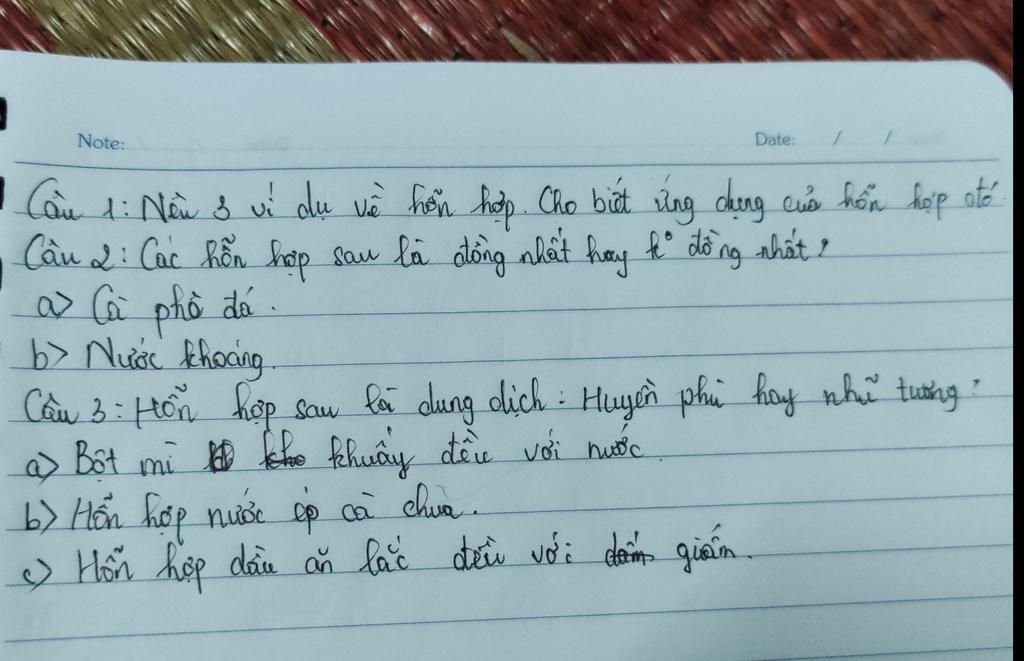 Note:
Date: / /
Câu 1: Nêu 3 ví dụ về hỗn hợp. Cho biết ứng dụng của hỗn hợp đó
Câu 2: Các hỗn hợp sau là đồng nhất hay k° đồng nhất?
a) Cà phê đá.
b) Nước khoáng.
Câu 3: Hỗn hợp sau là dung dịch: Huyền phù hay nhũ tương?
a) Bột mì khuấy đều với nước.
b) Hỗn hợp nước ép cà chua.
c) Hỗn hợp dầu ăn lắc đều với giấm.